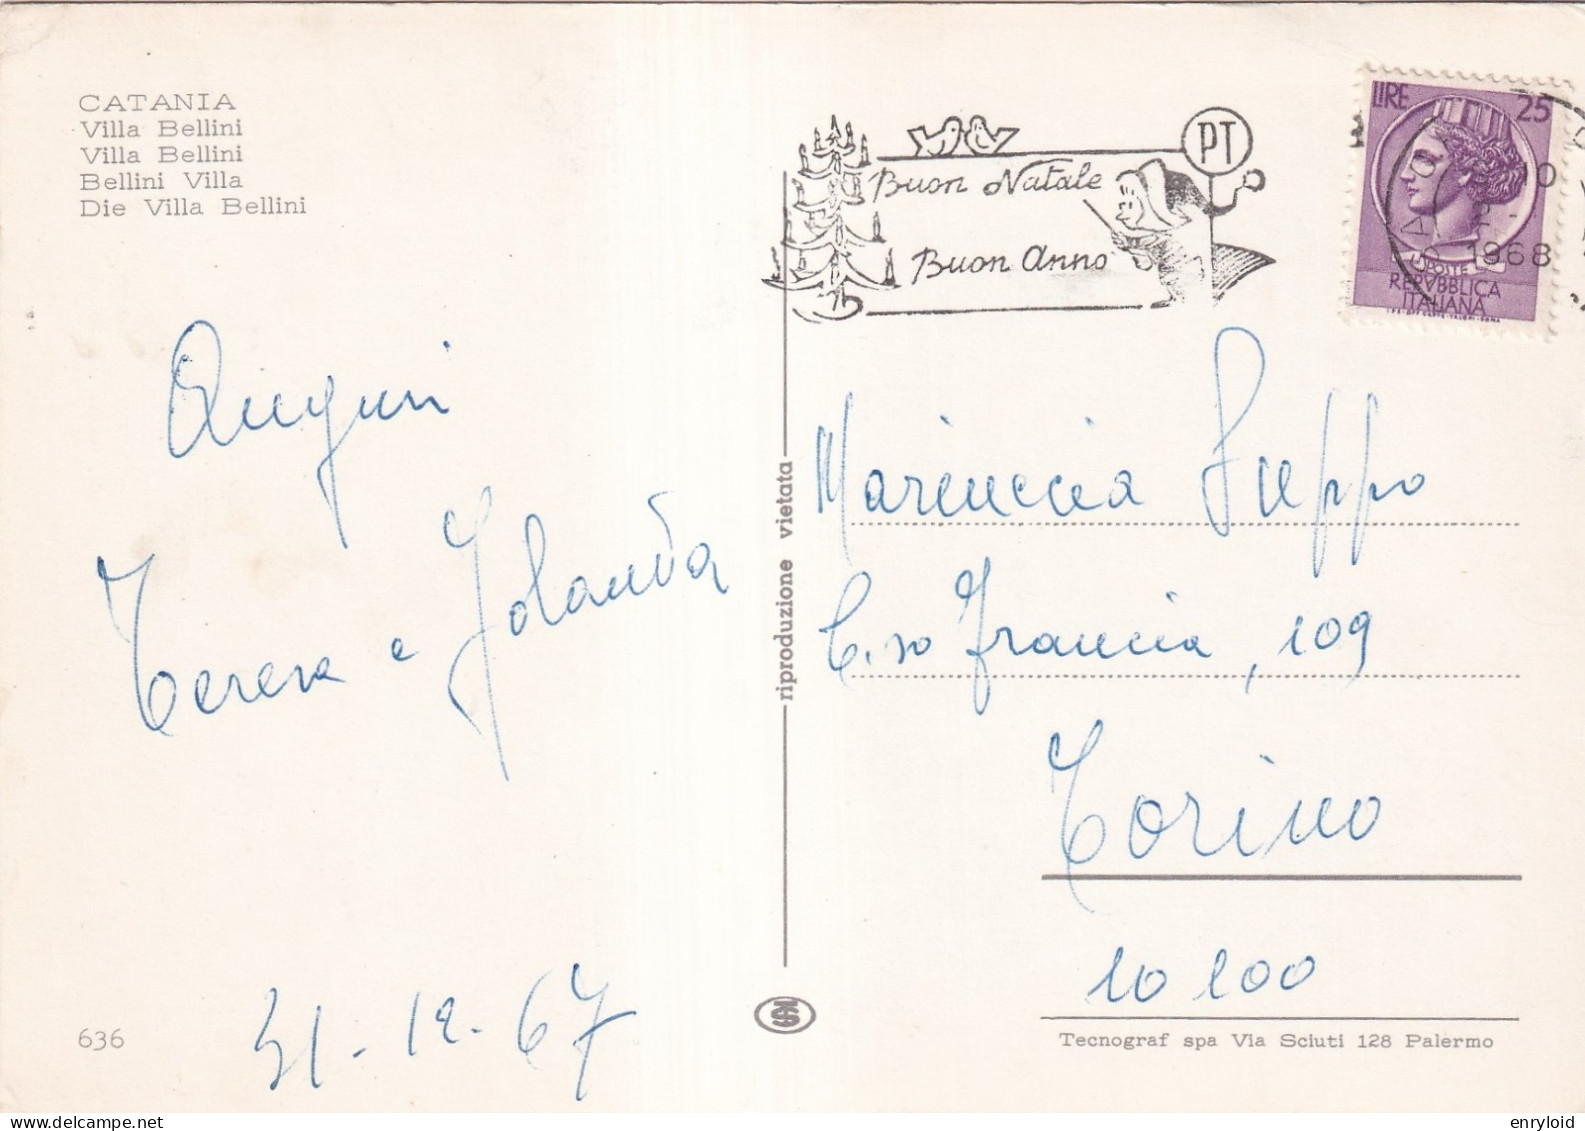 CATANIA
Villa Bellini
Villa Bellini
Bellini Villa
Die Villa Bellini
Buon Natale
Buon Anno
PT
LIRE 25
POSTE
REPVBBLICA
ITALIANA
1968
Auguri
Teresa e Jolanda
31-12-67
636
riproduzione vietata
Mariuccia
C.so Francia, 109
Torino
10100
Tecnograf spa Via Sciuti 128 Palermo
enryloid
delcampe.net